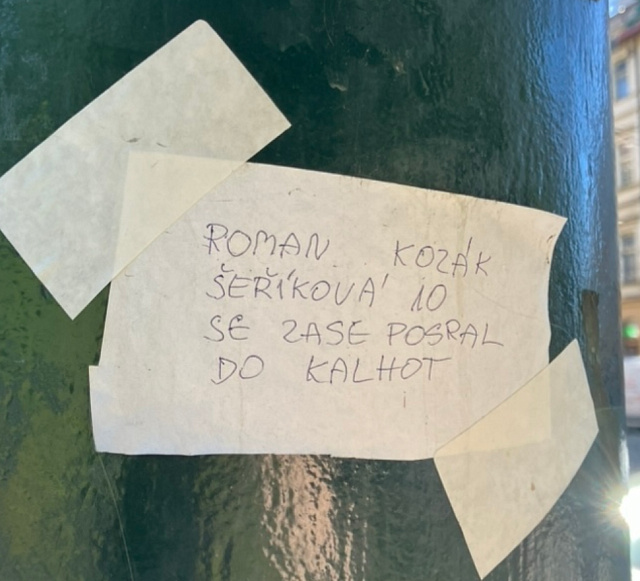 ROMAN KOZÁK
ŠEŘÍKOVÁ 10
SE ZASE POSRAL
DO KALHOT